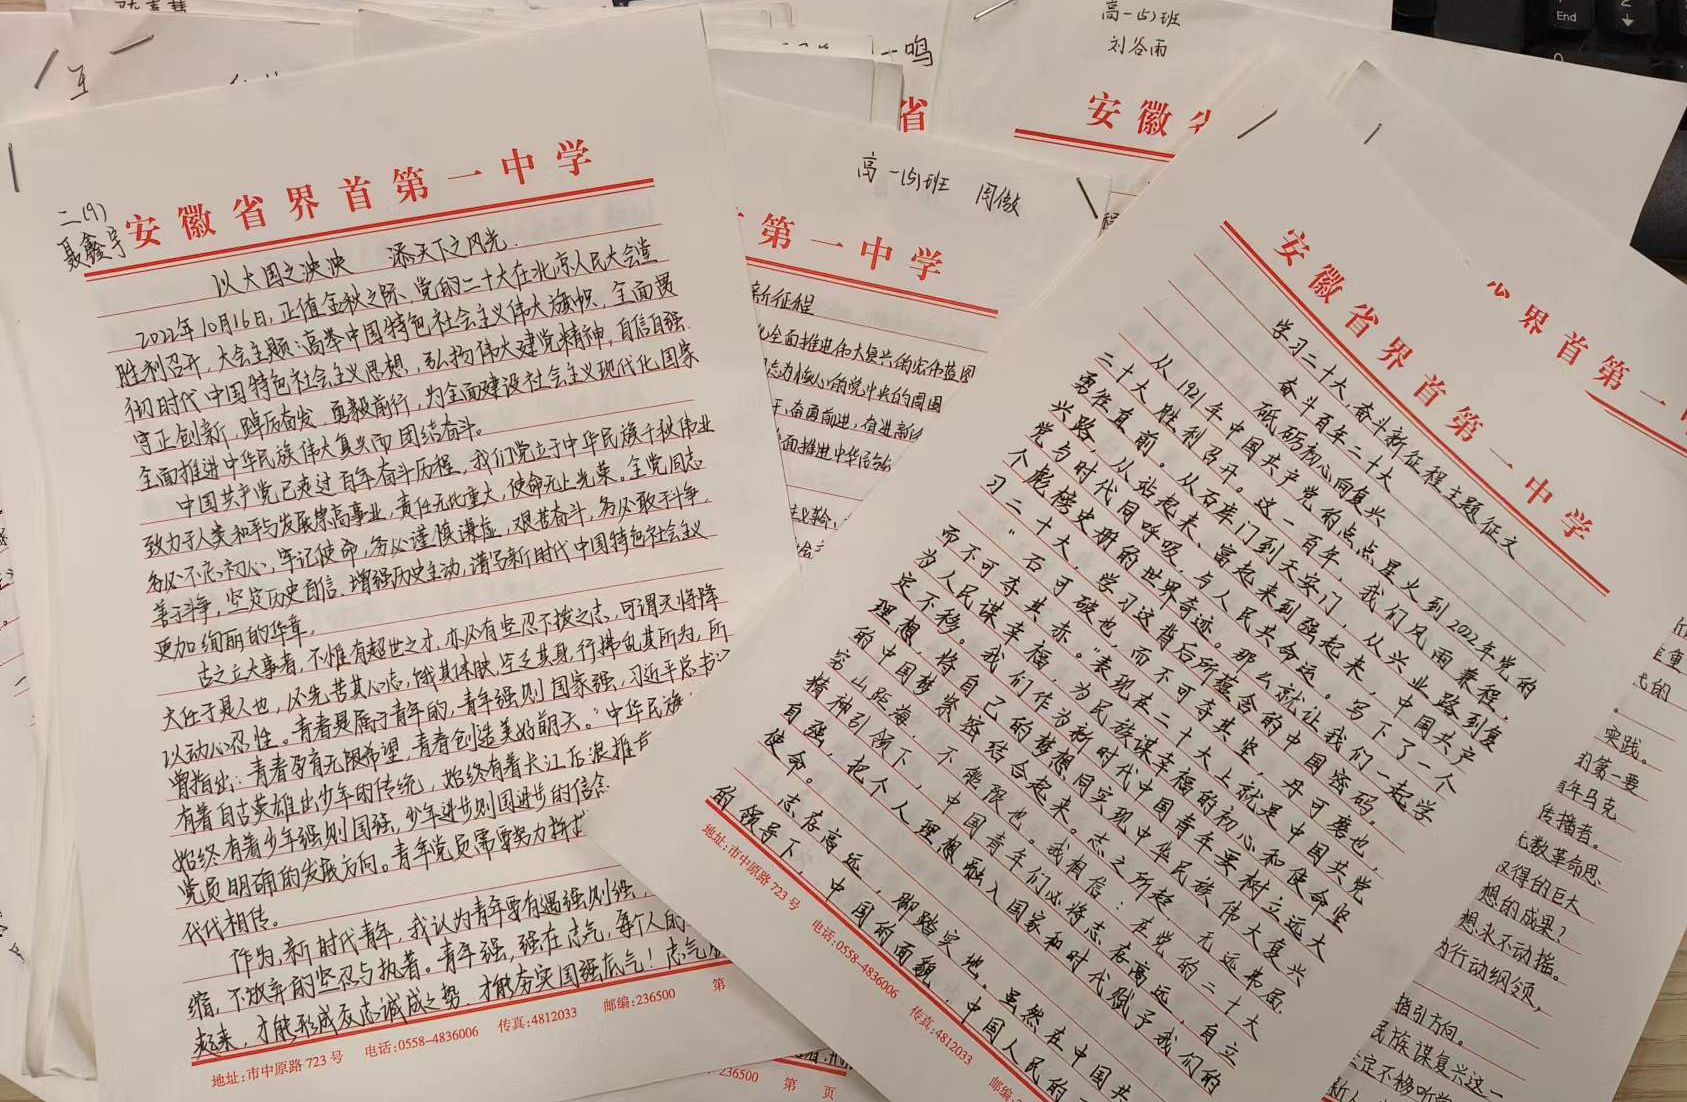 二(9)
聂鑫宇
安徽省界首第一中学
以大国之泱泱 添天下之风光.
2022年10月16日,正值金秋之际,党的二十大在北京人民大会堂
胜利召开,大会主题:高举中国特色社会主义伟大旗帜,全面贯
彻时代中国特色社会主义思想,弘扬伟大建党精神,自信自强.
守正创新,踔厉奋发,勇毅前行,为全面建设社会主义现代化国家
全面推进中华民族伟大复兴而团结奋斗。
中国共产党已走过百年奋斗历程,我们党立于中华民族千秋伟业
致力于人类和平与发展崇高事业,责任无比重大,使命无上光荣。全党同志
务必不忘初心,牢记使命,务必谨慎谦虚,艰苦奋斗,务必敢于斗争,
善于斗争,坚定历史自信,增强历史主动,谱写新时代中国特色社会主义
更加绚丽的华章。
古之立大事者,不惟有超世之才,亦必有坚忍不拨之志,可谓天将降
大任于是人也,必先苦其心志,饿其体肤,空乏其身,行拂乱其所为,所
以动心忍性。青春是属于青年的,青年强则国家强,习近平总书记
曾指出:青春孕育无限希望,青春创造美好明天。中华民族
有着自古英雄出少年的传统,始终有着长江后浪推
始终有着少年强则国强,少年进步则国进步的信念
党员明确的发展方向。青年党员需要努力拼
代代相传。
作为新时代青年,我认为青年要有遇强则强,
缩,不放弃的坚忍与执着。青年强,强在志气,每个人的
起来,才能形成众志诚成之势,才能夯实国强底气!志气
地址:市中原路723号 电话:0558-4836006 传真:4812033 邮编:236500 第
高一(5)班 闫傲
第一中学
新征程
化全面推进伟大复兴的宏伟蓝图
志为核心的党中央的周围
奋勇前进,奋进新
面推进中华民族
236500 第 页
鸣
省
高一(5)班
刘谷雨
安徽省
安徽省界首第一中学
学习二十大 奋斗新征程主题征文
奋斗百年二十大
砥砺初心向复兴
从1921年中国共产党的点点星火到2022年党的
二十大胜利召开。这一百年,我们风雨兼程,
勇往直前。从石库门到天安门,从兴业路到复
兴路,从站起来、富起来到强起来,中国共产
党与时代同呼吸,与人民共命运。写下了一个
个彪榜史册的世界奇迹。那么就让我们一起学
习二十大,学习这背后所蕴含的中国密码。
“石可破也,而不可夺其坚,丹可磨也,
而不可夺其赤。”表现在二十大上就是中国共党
为人民谋幸福,为民族谋幸福的初心和使命坚
定不移。我们作为新时代中国青年要树立远大
理想,将自己的梦想同实现中华民族伟大复兴
的中国梦紧密结合起来。志之所趋,无远弗届,
穷山距海,不能限也。我相信:在党的二十大
精神引领下,中国青年们必将志存高远,自立
自强,把个人理想融入国家和时代赋予我们的
使命。
志存高远,脚踏实地。虽然在中国共
的领导下,中国的面貌,中国人民的
地址:市中原路723号 电话:0558-4836006 传真:4812033 邮编:
界首第一
实践。
的第一要
青年马克
传播者。
数革命思
取得的巨大
想的成果?
想永不动摇。
行动纲领,
指引方向。
民族谋复兴这一
End
2